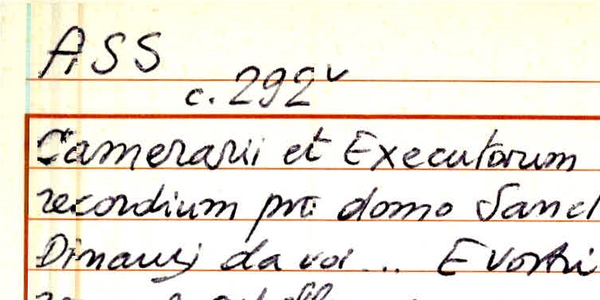 ASS
c. 292v
Camerarii et Executorum
recordium pro domo Sanct
Dinanzj da voi ... E vostri